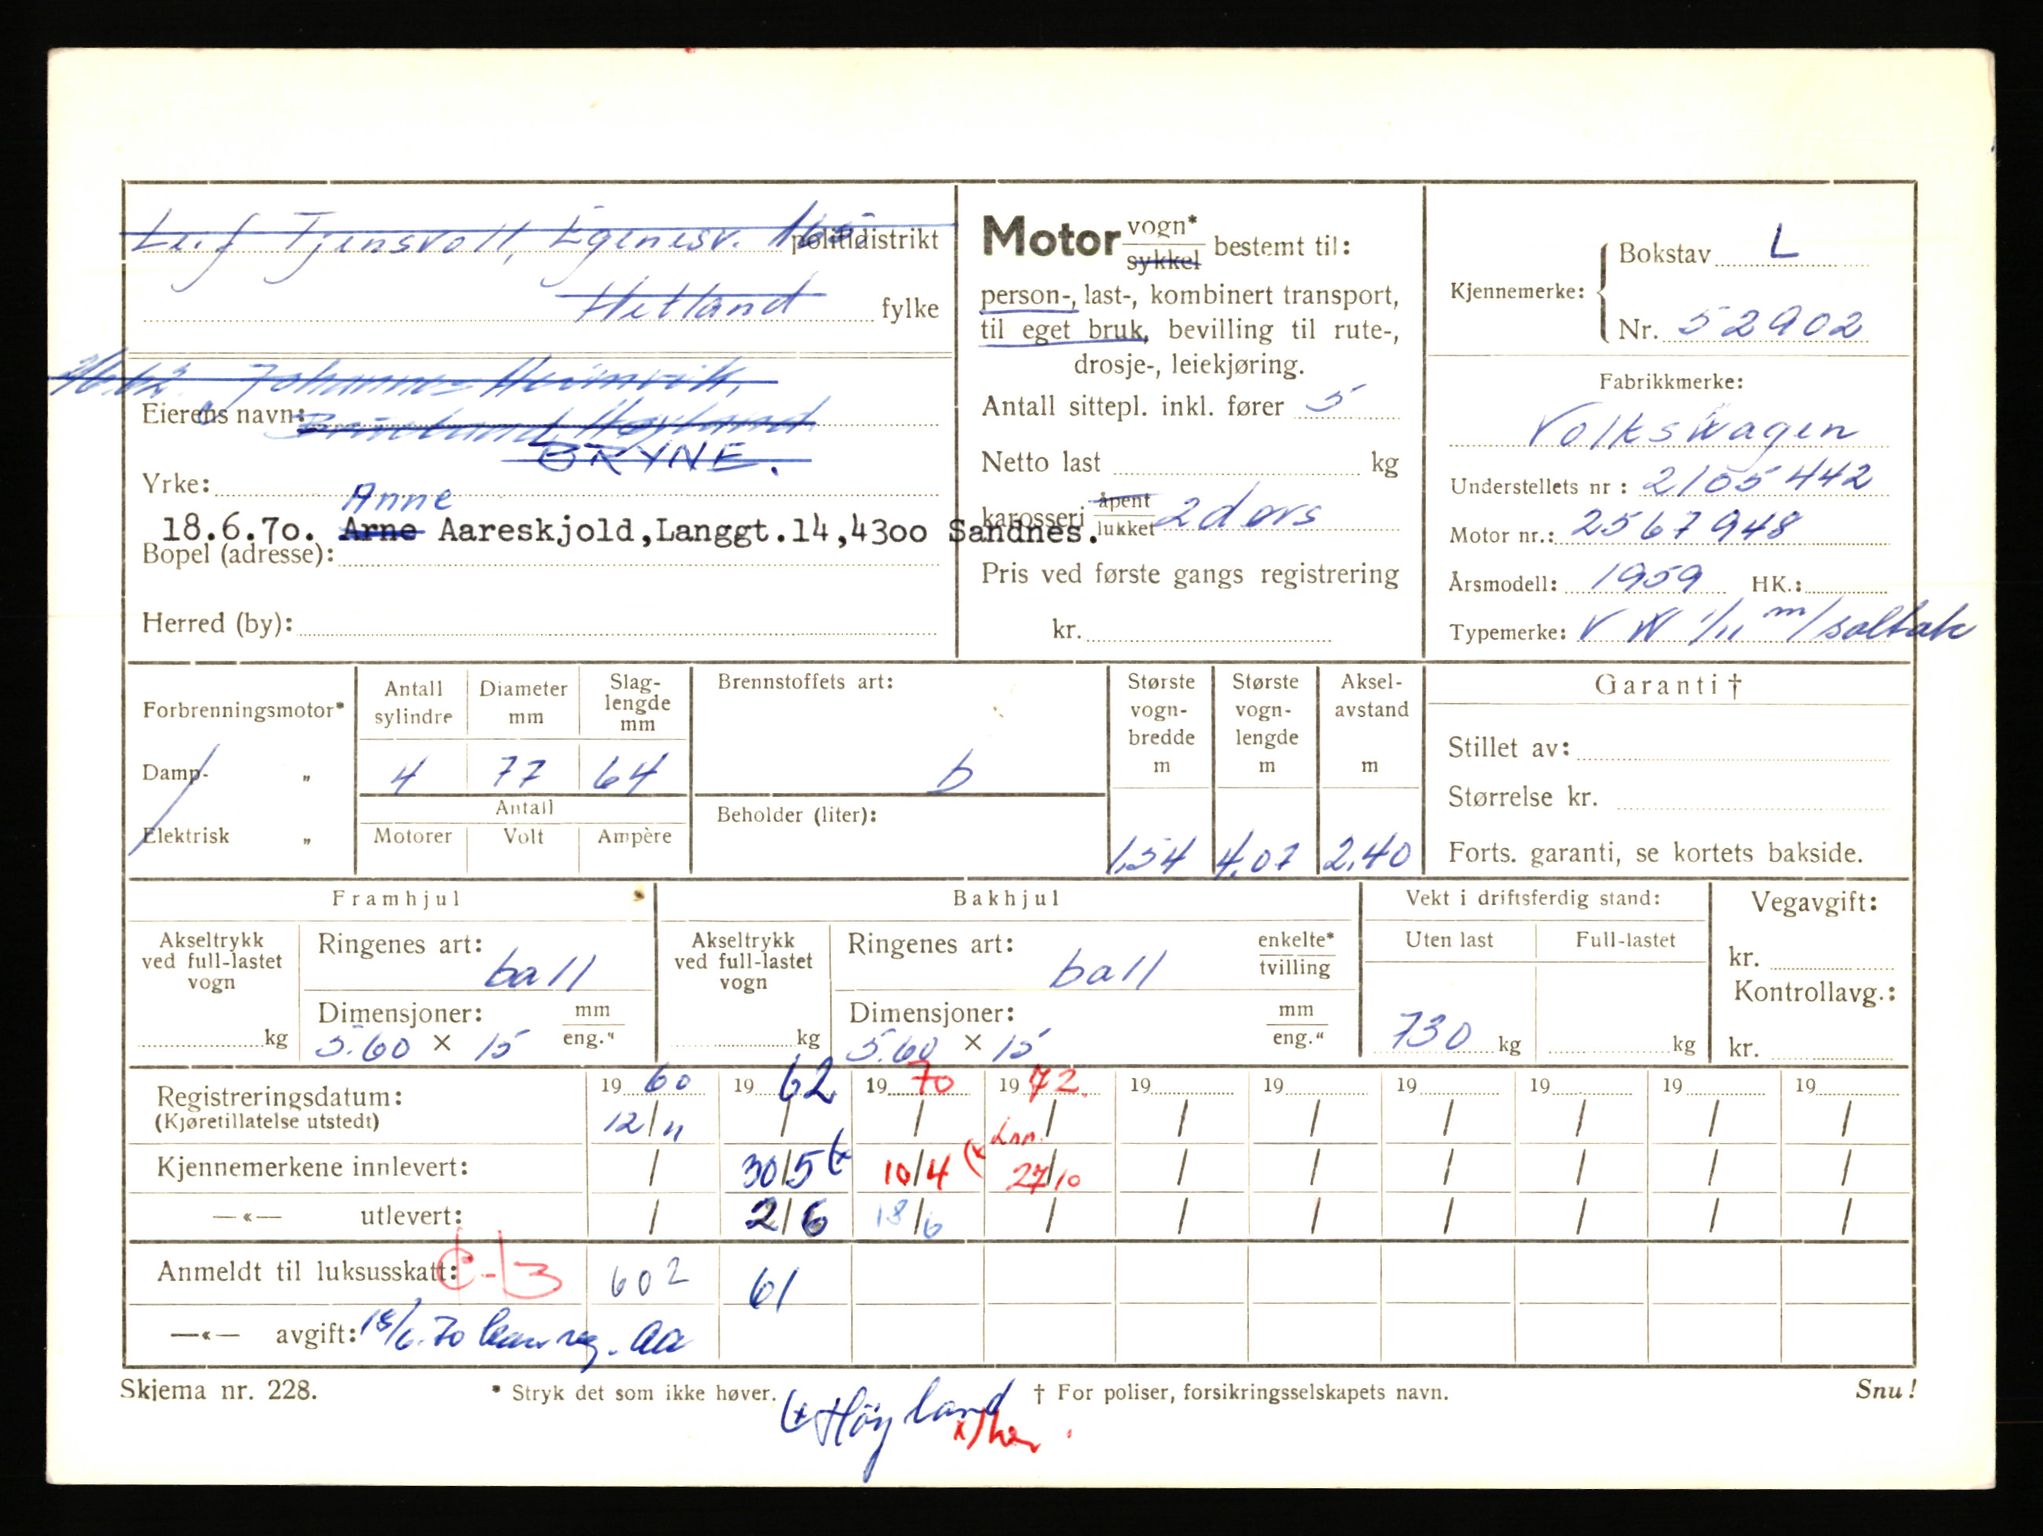 Leif Tjensvoll, Egenesv. politidistrikt
Hetland fylke
Johannes
Eierens navn: Høyland
BRYNE.
Yrke:
Anne
18.6.70. Arne Aareskjold,Langgt.14,4300 Sandnes.
Bopel (adresse):
Herred (by):
Motor vogn* sykkel bestemt til:
person-, last-, kombinert transport,
til eget bruk, bevilling til rute-,
drosje-, leiekjøring.
Antall sittepl. inkl. fører 5
Netto last kg
karosseri åpent lukket 2 dørs
Pris ved første gangs registrering
kr.
Kjennemerke: Bokstav L
Nr. 52902
Fabrikkmerke:
Volkswagen
Understellets nr : 2105442
Motor nr.: 2567948
Årsmodell: 1959 HK.:
Typemerke: V W 1/11 m/soltak
Forbrenningsmotor*
Damp- „
Elektrisk „
Antall sylindre Diameter mm Slag-lengde mm
4 77 64
Antall
Motorer Volt Ampère
Brennstoffets art:
b
Beholder (liter):
Største vogn-bredde m Største vogn-lengde m Aksel-avstand m
1.54 4.07 2.40
Garanti †
Stillet av:
Størrelse kr.
Forts. garanti, se kortets bakside.
Framhjul
Akseltrykk ved full-lastet vogn kg
Ringenes art: ball
Dimensjoner: mm eng."
5.60 × 15
Bakhjul
Akseltrykk ved full-lastet vogn kg
Ringenes art: ball enkelte* tvilling
Dimensjoner: mm eng."
5.60 × 15
Vekt i driftsferdig stand:
Uten last Full-lastet
730 kg kg
Vegavgift:
kr.
Kontrollavg.:
kr.
Registreringsdatum: 19 60 19 62 19 70 19 72. 19 19 19 19 19 19
(Kjøretillatelse utstedt) 12/11 / / / / / / / / /
Kjennemerkene innlevert: / 30/5 (x 10/4 (x 27/10 / / / / / /
—«— utlevert: / 2/6 18/6 / / / / / / /
Anmeldt til luksusskatt: 602 61
—«— avgift: 18/6.70 aa
Skjema nr. 228. * Stryk det som ikke høver. † For poliser, forsikringsselskapets navn. Snu!
(x Høyland
x) her